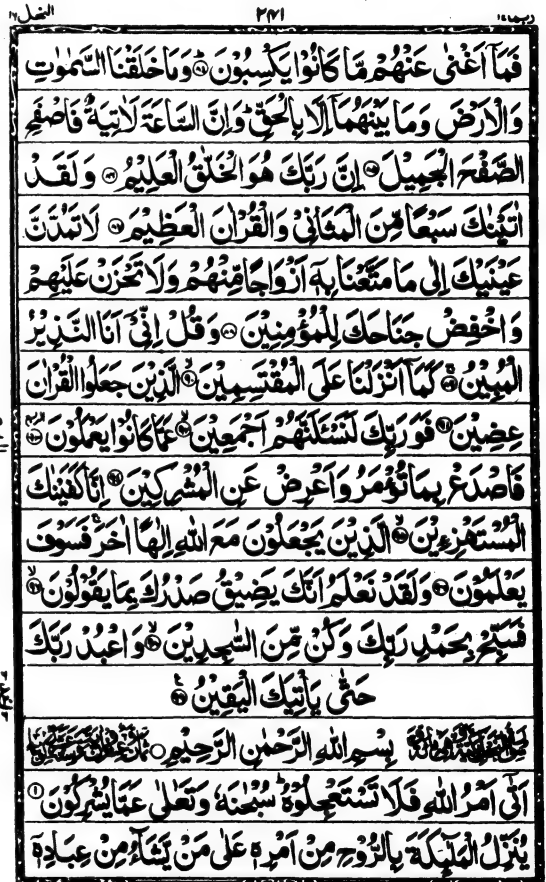 ربما ١٤ ٢٤١ النحل ١٦
فَمَآ اَغْنٰى عَنْهُمْ مَّا كَانُوْا يَكْسِبُوْنَ ؕ﴿۸۴﴾ وَمَا خَلَقْنَا السَّمٰوٰتِ
وَالْاَرْضَ وَمَا بَيْنَهُمَاۤ اِلَّا بِالْحَقِّ ؕ وَاِنَّ السَّاعَةَ لَاٰتِيَةٌ فَاصْفَحِ
الصَّفْحَ الْجَمِيْلَ ﴿۸۵﴾ اِنَّ رَبَّكَ هُوَ الْخَلّٰقُ الْعَلِيْمُ ﴿۸۶﴾ وَلَقَدْ
اٰتَيْنٰكَ سَبْعًا مِّنَ الْمَثَانِيْ وَالْقُرْاٰنَ الْعَظِيْمَ ﴿۸۷﴾ لَا تَمُدَّنَّ
عَيْنَيْكَ اِلٰى مَا مَتَّعْنَا بِهٖۤ اَزْوَاجًا مِّنْهُمْ وَلَا تَحْزَنْ عَلَيْهِمْ
وَاخْفِضْ جَنَاحَكَ لِلْمُؤْمِنِيْنَ ﴿۸۸﴾ وَقُلْ اِنِّيْۤ اَنَا النَّذِيْرُ
الْمُبِيْنُ ۚ﴿۸۹﴾ كَمَاۤ اَنْزَلْنَا عَلَى الْمُقْتَسِمِيْنَ ۙ﴿۹۰﴾ الَّذِيْنَ جَعَلُوا الْقُرْاٰنَ
عِضِيْنَ ﴿۹۱﴾ فَوَرَبِّكَ لَنَسْـَٔلَنَّهُمْ اَجْمَعِيْنَ ۙ﴿۹۲﴾ عَمَّا كَانُوْا يَعْمَلُوْنَ ﴿۹۳﴾
فَاصْدَعْ بِمَا تُؤْمَرُ وَاَعْرِضْ عَنِ الْمُشْرِكِيْنَ ﴿۹۴﴾ اِنَّا كَفَيْنٰكَ
الْمُسْتَهْزِءِيْنَ ۙ﴿۹۵﴾ الَّذِيْنَ يَجْعَلُوْنَ مَعَ اللّٰهِ اِلٰهًا اٰخَرَ ۚ فَسَوْفَ
يَعْلَمُوْنَ ﴿۹۶﴾ وَلَقَدْ نَعْلَمُ اَنَّكَ يَضِيْقُ صَدْرُكَ بِمَا يَقُوْلُوْنَ ۙ﴿۹۷﴾
فَسَبِّحْ بِحَمْدِ رَبِّكَ وَكُنْ مِّنَ السّٰجِدِيْنَ ۙ﴿۹۸﴾ وَاعْبُدْ رَبَّكَ
حَتّٰى يَاْتِيَكَ الْيَقِيْنُ ﴿۹۹﴾
بِسْمِ اللّٰهِ الرَّحْمٰنِ الرَّحِيْمِ
اَتٰۤى اَمْرُ اللّٰهِ فَلَا تَسْتَعْجِلُوْهُ ؕ سُبْحٰنَهٗ وَتَعٰلٰى عَمَّا يُشْرِكُوْنَ ﴿۱﴾
يُنَزِّلُ الْمَلٰٓئِكَةَ بِالرُّوْحِ مِنْ اَمْرِهٖ عَلٰى مَنْ يَّشَآءُ مِنْ عِبَادِهٖۤ